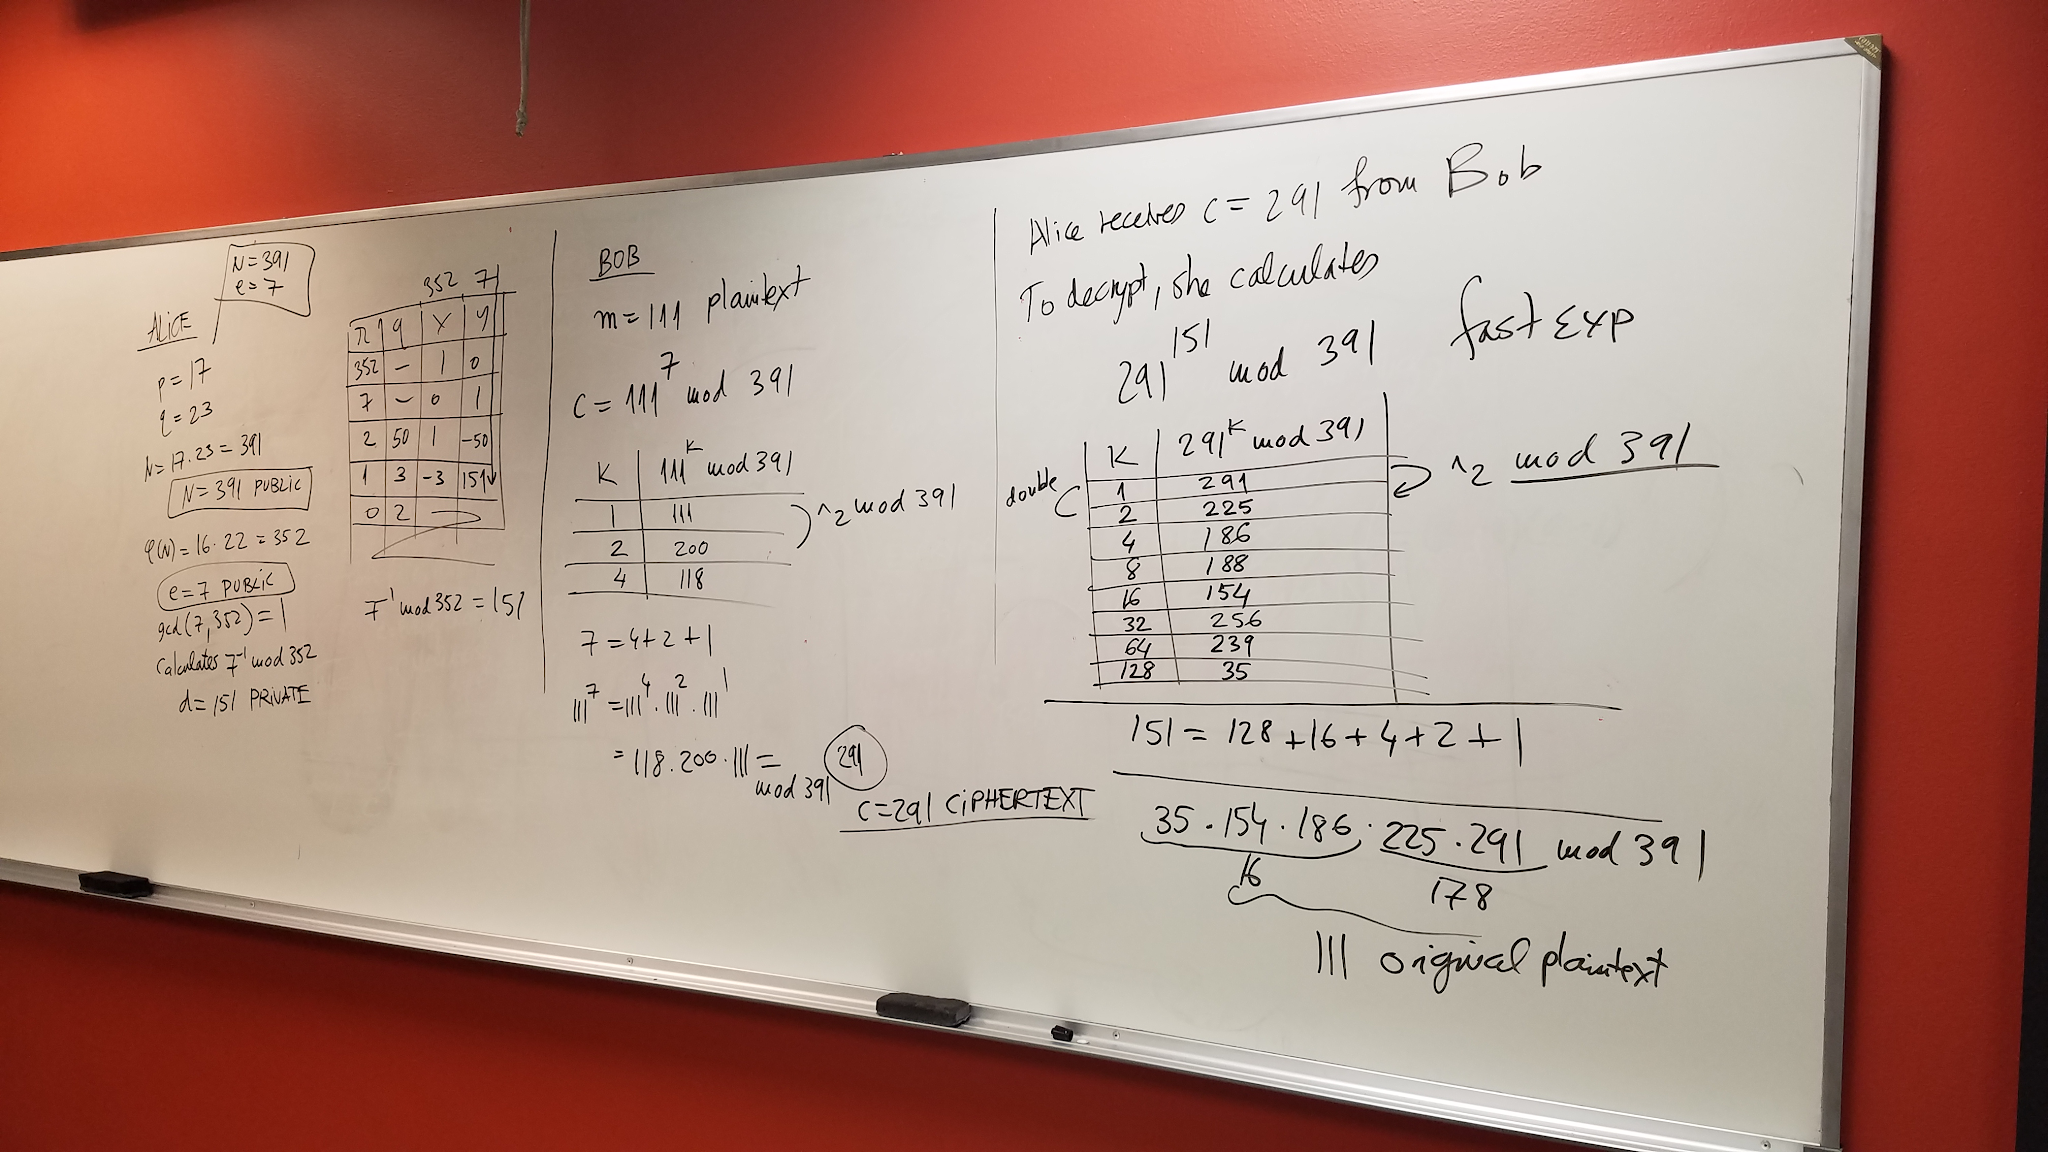 N=391
e=7
ALICE
p=17
q=23
N=17.23=391
N=391 PUBLIC
φ(N)=16.22=352
e=7 PUBLIC
gcd(7,352)=1
Calculates 7^-1 mod 352
d=151 PRIVATE
352 7
r q x y
352 – 1 0
7 – 0 1
2 50 1 -50
1 3 -3 151
0 2
7^-1 mod 352 = 151
BOB
m=111 plaintext
C = 111^7 mod 391
K 111^K mod 391
1 111
2 200
4 118
^2 mod 391
7 = 4+2+1
111^7 = 111^4 . 111^2 . 111^1
= 118.200.111 = 291
mod 391
C=291 CIPHERTEXT
Alice receives C = 291 from Bob
To decrypt, she calculates
291^151 mod 391
fast Exp
K 291^K mod 391
1 291
2 225
4 186
8 188
16 154
32 256
64 239
128 35
double
^2 mod 391
151 = 128+16+4+2+1
35.154.186.225.291 mod 391
16 178
111 original plaintext